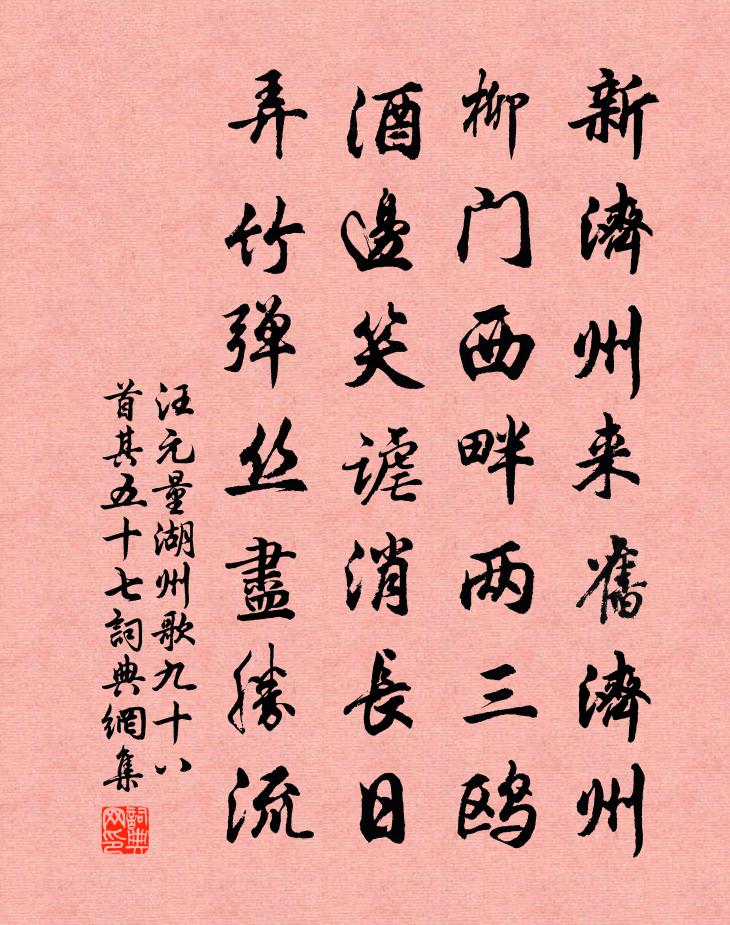 新濟州来舊濟州
柳门西畔两三鸥
酒邊笑謔消長日
弄竹弹丝盡勝流
汪元量湖州歌九十八
首其五十七詞典網集
詞典
网印